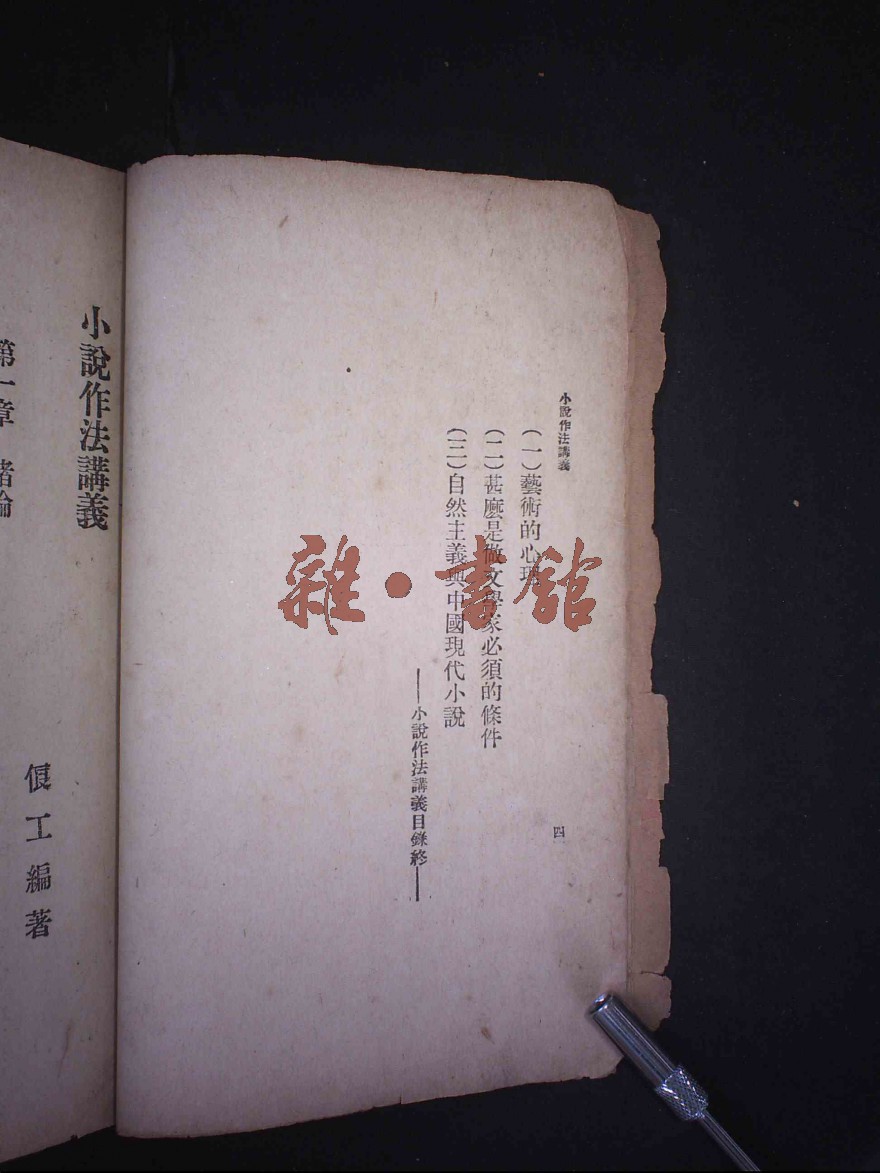 小說作法講義
四
(一)藝術的心理
(二)甚麼是做文學家必須的條件
(三)自然主義與中國現代小說
——小說作法講義目錄終——
小說作法講義
第一章 緒論
俍工編著
雜·書館